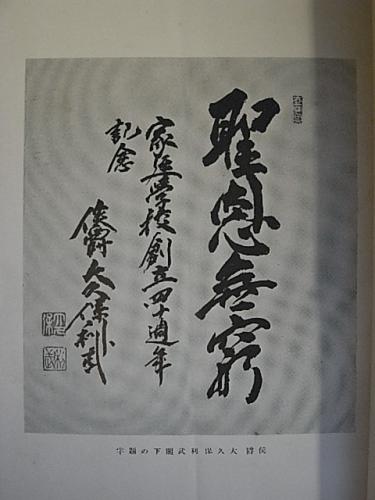 聖恩無窮
家庭学校創立四十週年
記念
侯爵大久保利武
侯爵大久保利武閣下の題字